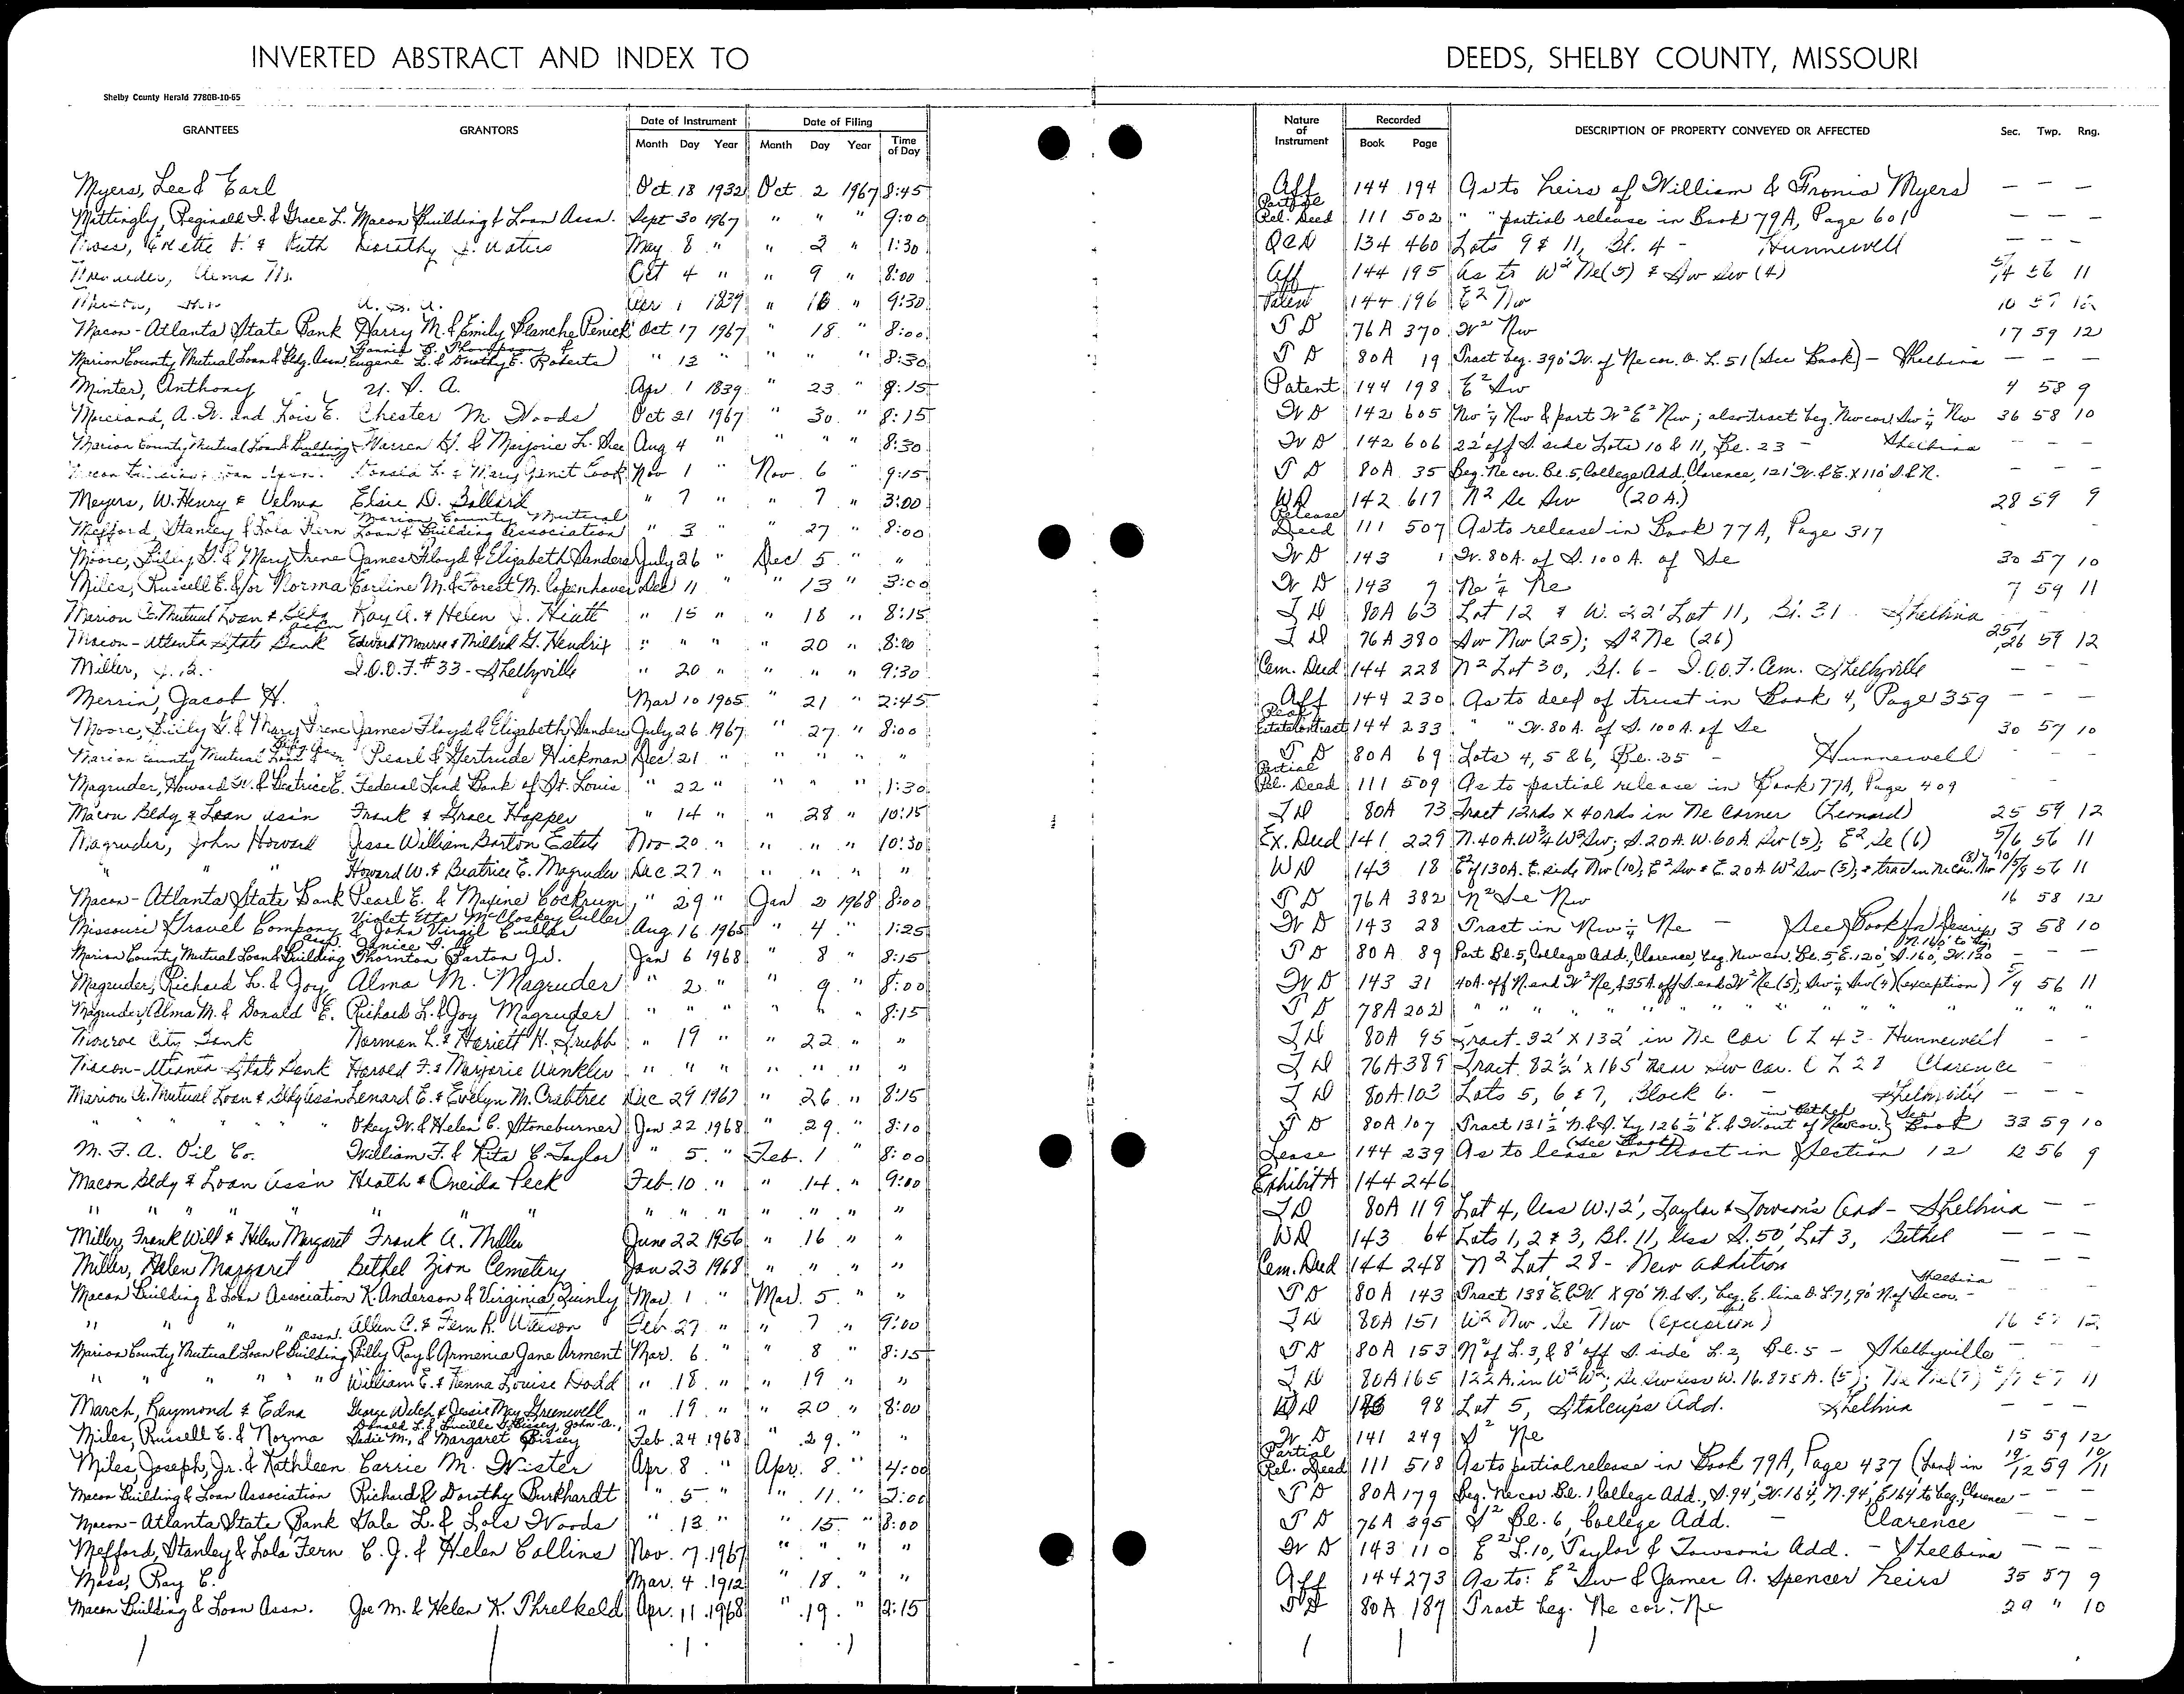 INVERTED ABSTRACT AND INDEX TO DEEDS, SHELBY COUNTY, MISSOURI
Shelby County Herald 7780B-10-65
GRANTEES GRANTORS Date of Instrument Month Day Year Date of Filing Month Day Year Time of Day Nature of Instrument Recorded Book Page DESCRIPTION OF PROPERTY CONVEYED OR AFFECTED Sec. Twp. Rng.
Myers, Lee & Earl Oct. 18 1932 Oct. 2 1967 8:45 Aff 144 194 As to heirs of William & Fronia Myers — — —
Mattingly, Reginald I. & Grace L. Macon Building & Loan Assn. Sept 30 1967 " " " 9:00 Rel. Deed 111 502 " " partial release in Book 79A, Page 601 — — —
& Ruth Dorothy J. Waters May 8 " " 3 " 1:30 QCD 134 460 Lots 9 & 11, Bl. 4 - Hunnewell — — —
Alma M. Oct 4 " " 9 " 8:00 Aff 144 195 As to W² Ne (5) & Sw Sw (4) 5/4 56 11
U. S. A. Apr 1 1839 " 16 " 9:30 Patent 144 196 E² Nw
Macon-Atlanta State Bank Harry M. & Emily Blanche Penick Oct 17 1967 " 18 " 8:00 T D 76A 370 W² Nw 17 59 12
Marion County Mutual Loan & Bldg. Assn. Fannie B. Thompson & Eugene L. & Dorothy E. Roberts " 13 " " " " 8:30 T D 80A 19 Tract beg. 390' W. of Ne cor. O. L. 51 (See Book) - Shelbina — — —
Minter, Anthony U. S. A. Apr. 1 1839 " 23 " 8:15 Patent 144 198 E² Sw 4 58 9
Moreland, A. W. and Lois E. Chester M. Woods Oct 21 1967 " 30 " 8:15 W D 142 605 Nw ¼ Nw & part W² E² Nw; also tract beg. Nw cor. Sw ¼ Nw 36 58 10
Marion County Mutual Loan & Building Warren G. & Marjorie L. Aug 4 " " " " 8:30 W D 142 606 22' off S. side Lots 10 & 11, Bl. 23 - Shelbina — — —
Donald L. & Mary Janet Cook Nov 1 " Nov 6 " 9:15 T D 80A 35 Beg. Ne cor. Bl. 5, College Add, Clarence, 121' W. & E. X 110' S. & N. — — —
Meyers, W. Henry & Velma Elsie D. Ballard " 7 " " 7 " 3:00 WD 142 617 N² Se Sw (20 A.) 28 59 9
Mefford, Stanley & Lola Fern Marion County Mutual Loan & Building Association " 3 " " 27 " 8:00 Release Deed 111 507 As to release in Book 77A, Page 317
Moore, Liley G. & Mary Irene James Floyd & Elizabeth Sanders July 26 " Dec 5 " " W D 143 1 W. 80 A. of S. 100 A. of Se 30 57 10
Miles, Russell E. &/or Norma Earline M. & Forest M. Copenhaver Dec 11 " " 13 " 3:00 W D 143 9 Ne ¼ Ne 7 59 11
Marion Co. Mutual Loan & Bldg assn Ray A. & Helen J. Hiatt " 15 " " 18 " 8:15 T D 80A 63 Lot 12 & W. 22' Lot 11, Bl. 31 Shelbina
Macon-Atlanta State Bank Edward Monroe & Mildred G. Hendrix " " " " 20 " 8:00 T D 76A 380 Sw Nw (25); S² Ne (26) 25/26 59 12
Miller, J. B. I.O.O.F. #33 - Shelbyville " 20 " " " " 9:30 Cem. Deed 144 228 N² Lot 30, Bl. 6 - I.O.O.F. Cem. Shelbyville — — —
Merrin, Jacob H. Mar 10 1905 " 21 " 2:45 Aff 144 230 As to deed of trust in Book 4, Page 359 — — —
Moore, Liley G. & Mary Irene James Floyd & Elizabeth Sanders July 26 1967 " 27 " 8:00 Real Estate Contract 144 233 " " W. 80 A. of S. 100 A. of Se 30 57 10
Marion County Mutual Loan & Bldg. Assn. Pearl & Gertrude Hickman Dec. 21 " " " " " T D 80A 69 Lots 4, 5 & 6, Bl. 35 - Hunnewell — — —
Magruder, Howard W. & Beatrice E. Federal Land Bank of St. Louis " 22 " " " " 1:30 Partial Rel. Deed 111 509 As to partial release in Book 77A, Page 409
Macon Bldg & Loan ass'n Frank & Grace Hopper " 14 " " 28 " 10:15 T D 80A 73 Tract 12rds x 40rds in Ne Corner (Leonard) 25 59 12
Magruder, John Howard Jesse William Barton Estate Nov 20 " " " " 10:30 Ex. Deed 141 229 N. 40A. W¾ W² Sw; S. 20A. W. 60A Sw (5); E² Se (6) 5/6 56 11
" " Howard W. & Beatrice E. Magruder Dec 27 " " " " " WD 143 18 E² of 130A. E. side Nw (10); E² Sw & E. 20A W² Sw (5); & tract in Ne Cor. Nw (8) 56 11
Macon-Atlanta State Bank Pearl E. & Maxine Cockrum " 29 " Jan 2 1968 8:00 T D 76A 382 N² Se Nw 16 58 12
Missouri Gravel Company Violet Etta McCloskey Culler & John Virgil Culler Aug 16 1965 " 4 " 1:25 W D 143 28 Tract in Nw ¼ Ne - See Book for Descrip 3 58 10
Marion County Mutual Loan & Building Assn. Janice I. & Thornton Parton Jr. Jan 6 1968 " 8 " 8:15 T D 80A 89 Part Bl. 5, College Add., Clarence, beg. Nw cor. Bl. 5, E. 120', S. 160', W. 120 N. 160' to beg — — —
Magruder, Richard L. & Joy Alma M. Magruder " 2 " " 9 " 8:00 W D 143 31 40A. off N. end W² Ne, & 35A. off S. end W² Ne (5); Sw ¼ Sw (4) (exception) 5/4 56 11
Magruder, Alma M. & Donald E. Richard L. & Joy Magruder " " " " " " 8:15 T D 78A 202 " " " " " " " " " " "
Monroe City Bank Norman L. & Hariett H. Grubb " 19 " " 22 " " T D 80A 95 Tract 32' X 132' in Ne Cor O L 43 - Hunnewell - -
Macon-Atlanta State Bank Harold F. & Marjorie Winkler " " " " " " " T D 76A 389 Tract 82½' x 165' near Sw Cor. O L 28 Clarence — —
Marion Co. Mutual Loan & Bldg Ass'n Lenard E. & Evelyn M. Crabtree Dec 29 1967 " 26 " 8:15 T D 80A 103 Lots 5, 6 & 7, Block 6. - — —
" " " " " Okey W. & Helen C. Stoneburner Jan 22 1968 " 29 " 8:10 T D 80A 107 Tract 131½' N. & S. by 126½' E. & W. out of Nw cor. in Bethel See Book 33 59 10
M. F. A. Oil Co. William F. & Rita C. Taylor " 5 " Feb. 1 " 8:00 Lease 144 239 As to lease on tract in Section 12 (See Book) 12 56 9
Macon Bldg & Loan Ass'n Heath & Oneida Peck Feb. 10 " " 14 " 9:00 Exhibit A 144 246
" " " " " " " " " " " " " " T D 80A 119 Lot 4, less W. 12', Taylor & Towson's Add - Shelbina — —
Miller, Frank Will & Helen Margaret Frank A. Miller June 22 1956 " 16 " " WD 143 64 Lots 1, 2 & 3, Bl. 11, less S. 50' Lot 3, Bethel — — —
Miller, Helen Margaret Bethel Zion Cemetery Jan 23 1968 " " " " Cem. Deed 144 248 N² Lot 28 - New Addition — — —
Macon Building & Loan Association K. Anderson & Virginia Quinly Mar. 1 " Mar. 5 " " T D 80A 143 Tract 138' E. & W. X 90' N. & S., beg. E. line O. L. 71, 90' N. of Se cor. - Shelbina
" " " " Allen C. & Fern R. Watson Feb 27 " " 7 " 9:00 T D 80A 151 W² Nw Se Nw (exception) 16 57 12
Marion County Mutual Loan & Building Assn. Billy Ray & Armenia Jane Arment Mar. 6 " " 8 " 8:15 T D 80A 153 N² of L. 3, & 8' off S. side L. 2, Bl. 5 - Shelbyville — — —
" " " " " " William E. & Fenna Louise Dodd " 18 " " 19 " " T D 80A 165 122 A. in W² W²; Se Sw less W. 16.875 A. (5); Ne Ne (7) 5/7 57 11
March, Raymond & Edna George Welch & Jessie May Greenwell " 19 " " 20 " 8:00 WD 143 98 Lot 5, Stalcups Add. Shelbina — — —
Miles, Russell E. & Norma Donald L. & Lucille G. Bissey, John A., Sadie M., & Margaret Bissey Feb. 24 1968 " 29 " " W D 141 249 S² Ne 15 59 12
Miles, Joseph, Jr. & Kathleen Carrie M. Wister Apr. 8 " Apr. 8 " 4:00 Partial Rel. Deed 111 518 As to partial release in Book 79A, Page 437 (Land in 59
Macon Building & Loan Association Richard & Dorothy Burkhardt " 5 " " 11 " 2:00 T D 80A 179 Beg. Ne cor. Bl. 1 College Add., S. 94', W. 164', N. 94', E 164' to beg., Clarence — — —
Macon-Atlanta State Bank Dale L. & Lola Woods " 13 " " 15 " 8:00 T D 76A 395 S² Bl. 6, College Add. - Clarence — — —
Mefford, Stanley & Lola Fern C. J. & Helen Collins Nov. 7 1967 " " " " W D 143 110 E² L. 10, Taylor & Towson's Add. - Shelbina — — —
Moss, Ray C. Mar. 4 1912 " 18 " " Aff 144 273 As to: E² Sw & James A. Spencer heirs 35 57 9
Macon Building & Loan Assn. Joe M. & Helen K. Threlkeld Apr. 11 1968 " 19 " 2:15 T D 80A 187 Tract beg. Ne cor. Ne 29 " 10